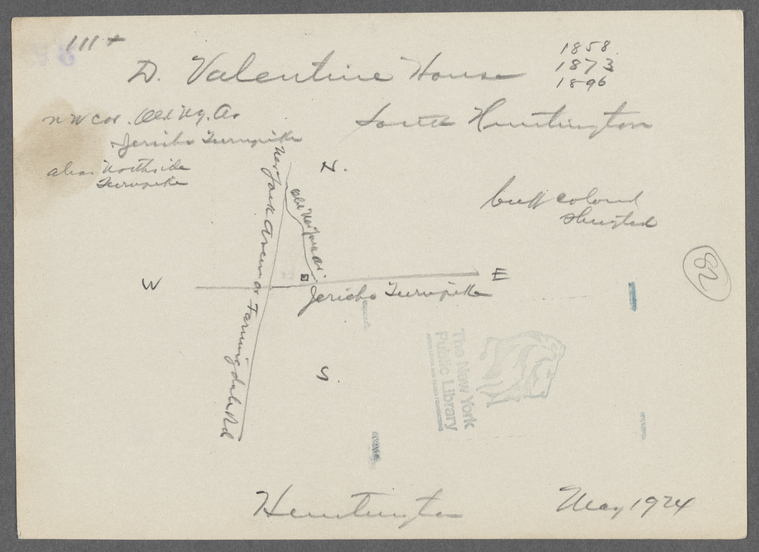 111+
D. Valentine House
1858.
1873
1896
N W cor. Old N.Y. Av
Jericho Turnpike
South Huntington
also Northside
Turnpike
N.
buff colored
shingled
New York Avenue or Farmingdale Rd
Old New York Av.
W
E
Jericho Turnpike
82
S.
The New York
Public Library
Huntington
May 1924